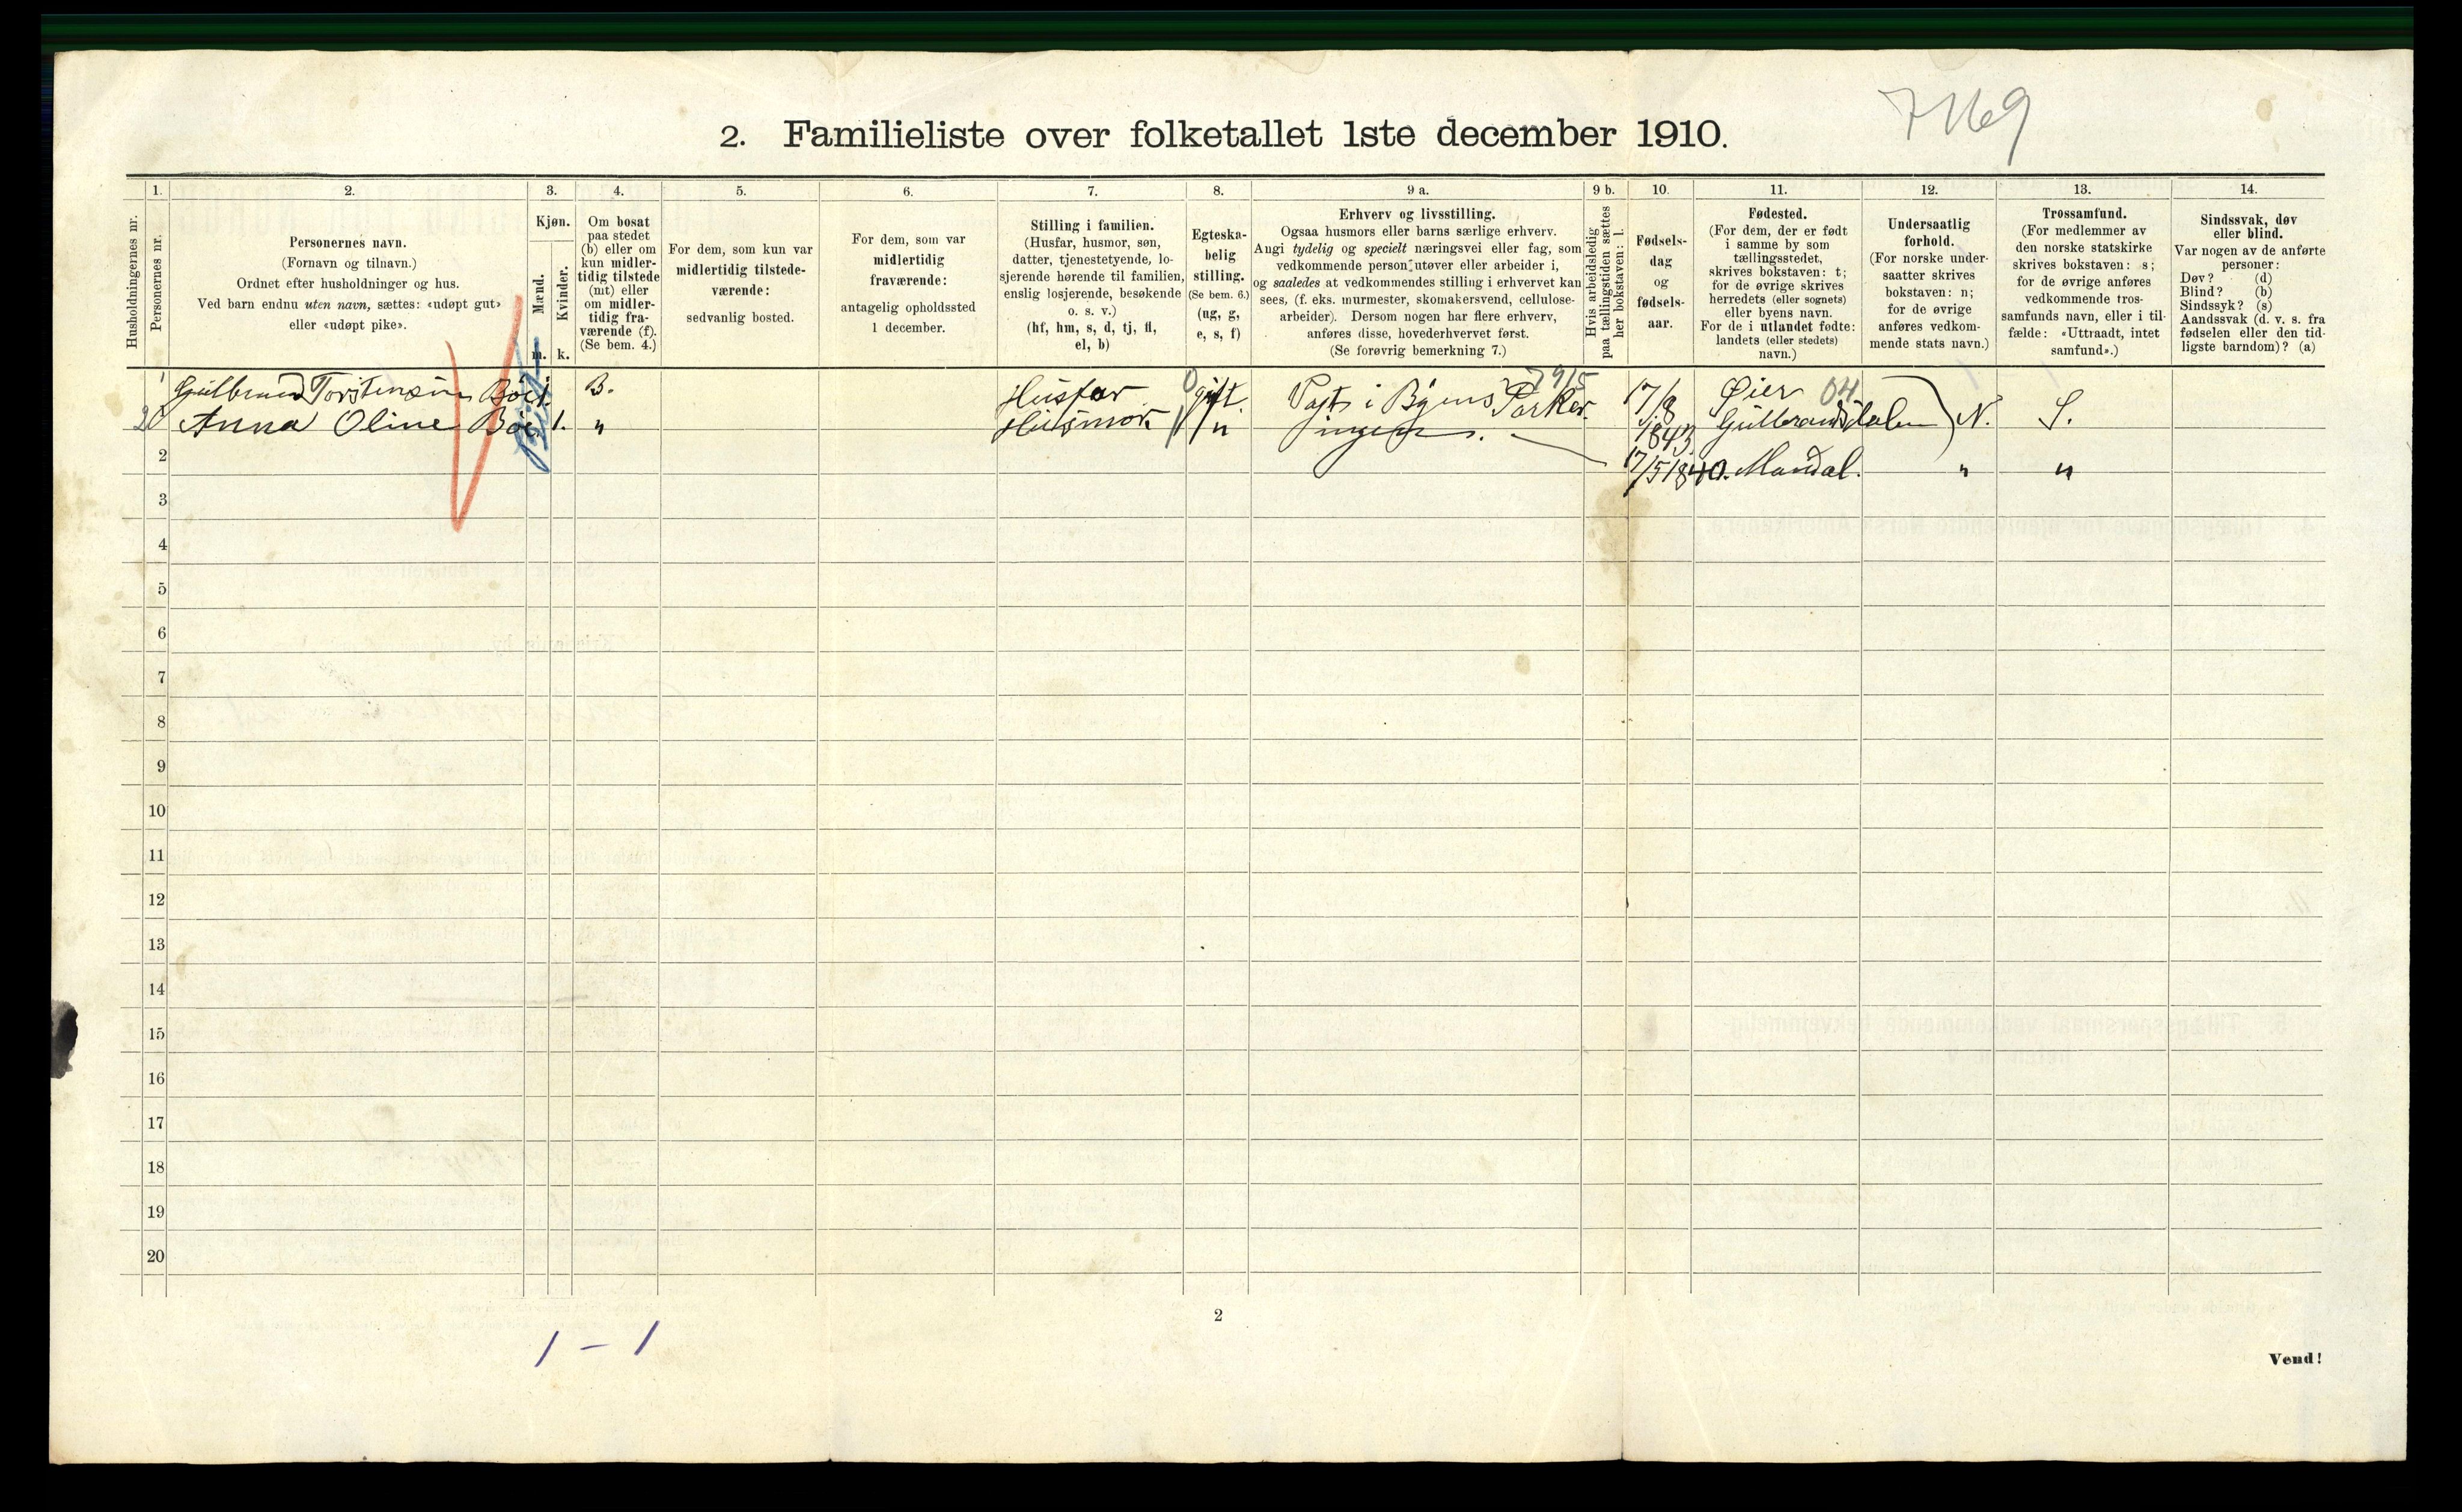 7169
2. Familieliste over folketallet 1ste december 1910.
1. 2. 3. 4. 5. 6. 7. 8. 9 a. 9 b. 10. 11. 12. 13. 14.
Husholdningernes nr.
Personernes nr.
Personernes navn.
(Fornavn og tilnavn.)
Ordnet efter husholdninger og hus.
Ved barn endnu uten navn, sættes: «udøpt gut»
eller «udøpt pike».
Kjøn.
Mænd.
Kvinder.
m. k.
Om bosat
paa stedet
(b) eller om
kun midler-
tidig tilstede
(mt) eller
om midler-
tidig fra-
værende (f).
(Se bem. 4.)
For dem, som kun var
midlertidig tilstede-
værende:
sedvanlig bosted.
For dem, som var
midlertidig
fraværende:
antagelig opholdssted
1 december.
Stilling i familien.
(Husfar, husmor, søn,
datter, tjenestetyende, lo-
sjerende hørende til familien,
enslig losjerende, besøkende
o. s. v.)
(hf, hm, s, d, tj, fl,
el, b)
Egteska-
belig
stilling.
(Se bem. 6.)
(ug, g,
e, s, f)
Erhverv og livsstilling.
Ogsaa husmors eller barns særlige erhverv.
Angi tydelig og specielt næringsvei eller fag, som
vedkommende person utøver eller arbeider i,
og saaledes at vedkommendes stilling i erhvervet kan
sees, (f. eks. murmester, skomakersvend, cellulose-
arbeider). Dersom nogen har flere erhverv,
anføres disse, hovederhvervet først.
(Se forøvrig bemerkning 7.)
Hvis arbeidsledig
paa tællingstiden sættes
her bokstaven: l.
Fødsels-
dag
og
fødsels-
aar.
Fødested.
(For dem, der er født
i samme by som
tællingsstedet,
skrives bokstaven: t;
for de øvrige skrives
herredets (eller sognets)
eller byens navn.
For de i utlandet fødte:
landets (eller stedets)
navn.)
Undersaatlig
forhold.
(For norske under-
saatter skrives
bokstaven: n;
for de øvrige
anføres vedkom-
mende stats navn.)
Trossamfund.
(For medlemmer av
den norske statskirke
skrives bokstaven: s;
for de øvrige anføres
vedkommende tros-
samfunds navn, eller i til-
fælde: «Uttraadt, intet
samfund».)
Sindssvak, døv
eller blind.
Var nogen av de anførte
personer:
Døv? (d)
Blind? (b)
Sindssyk? (s)
Aandssvak (d. v. s. fra
fødselen eller den tid-
ligste barndom)? (a)
1 Gulbrand Torstensøn Bøe 1. B. Husfar 0 gift. i Byens Parker. 17/8 1843 Øier 04 Gulbrandsdalen N. S.
2 Anna Oline Bøe 1. " Husmor. " ingen. 17/5 1840. Mandal. " "
2
3
4
5
6
7
8
9
10
11
12
13
14
15
16
17
18
19
20
2
1 - 1
Vend!